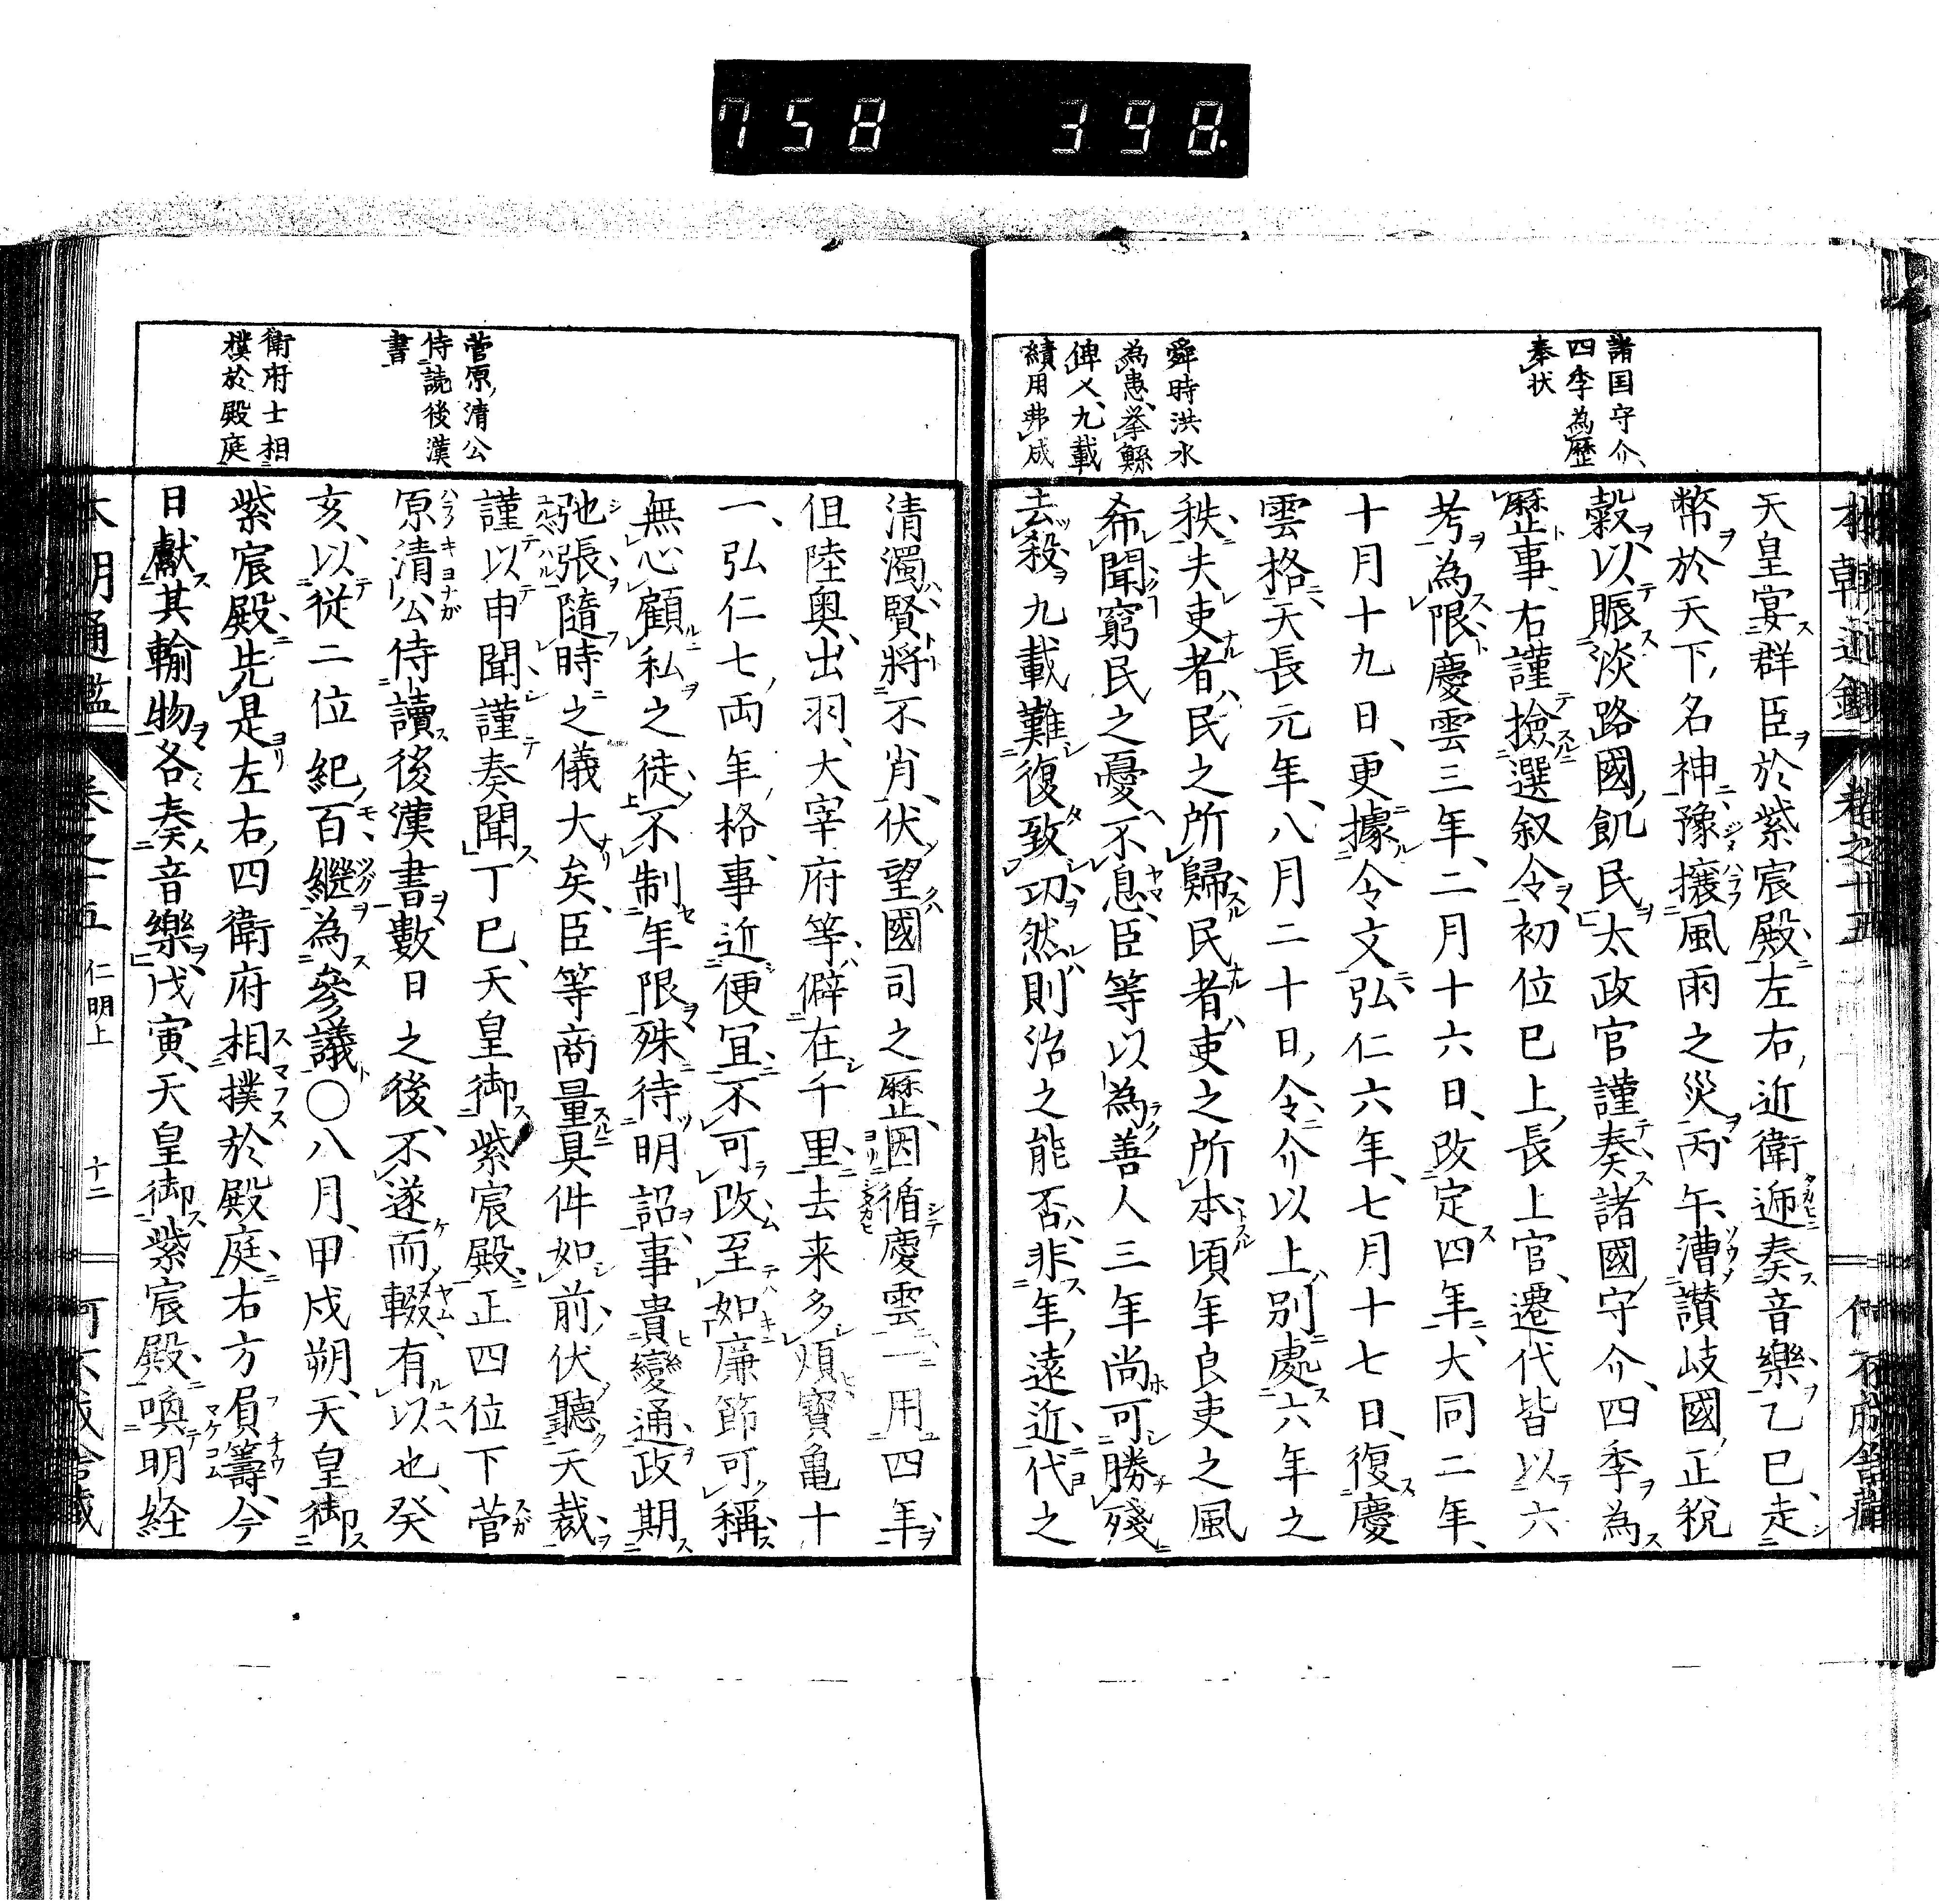 758 398.
諸国守介、
四季為歴
奉状
舜時洪水
為患、挙鯀
俾乂、九載
績用弗成
天皇宴群臣於紫宸殿、左右近衛遞奏音樂、乙巳、走
幣於天下名神、豫攘風雨之災、丙午、漕讃岐國正税
穀、以賑淡路國飢民、太政官謹奏、諸國守介、四季為
歴事、右謹撿選叙令、初位已上長上官、遷代皆以六
考為限、慶雲三年、二月十六日、改定四年、大同二年、
十月十九日、更據令文、弘仁六年、七月十七日、復慶
雲格、天長元年、八月二十日、令介以上、別處六年之
秩、夫吏者、民之所歸、民者吏之所本、頃年良吏之風
希聞、窮民之憂不息、臣等以為、善人三年尚可勝殘
去殺、九載難復致功、然則治之能否、非年遠近、代之
本朝通鑑 卷之廿五
清濁、賢將不肖、伏望國司之歴、因循慶雲、一用四年、
但陸奥、出羽、大宰府等、僻在千里、去来多煩、寳亀十
一、弘仁七、両年格、事近便宜、不可改、至如廉節可稱、
無心顧私之徒、不制年限、殊待明詔、事貴變通、政期
弛張、隨時之儀大矣、臣等商量、具件如前、伏聽天裁、
謹以申聞、謹奏聞、丁巳、天皇御紫宸殿、正四位下菅
原清公侍讀後漢書、數日之後、不遂而輟、有以也、癸
亥、以従二位紀百継為參議○八月、甲戍朔、天皇御
紫宸殿、先是左右四衛府、相撲於殿庭、右方負籌、今
日獻其輸物、各奏音樂、戊寅、天皇御紫宸殿、喚明経
菅原清公
侍読後漢
書
衛府士相
樸於殿庭
本朝通鑑 卷之廿五 仁明上 十二